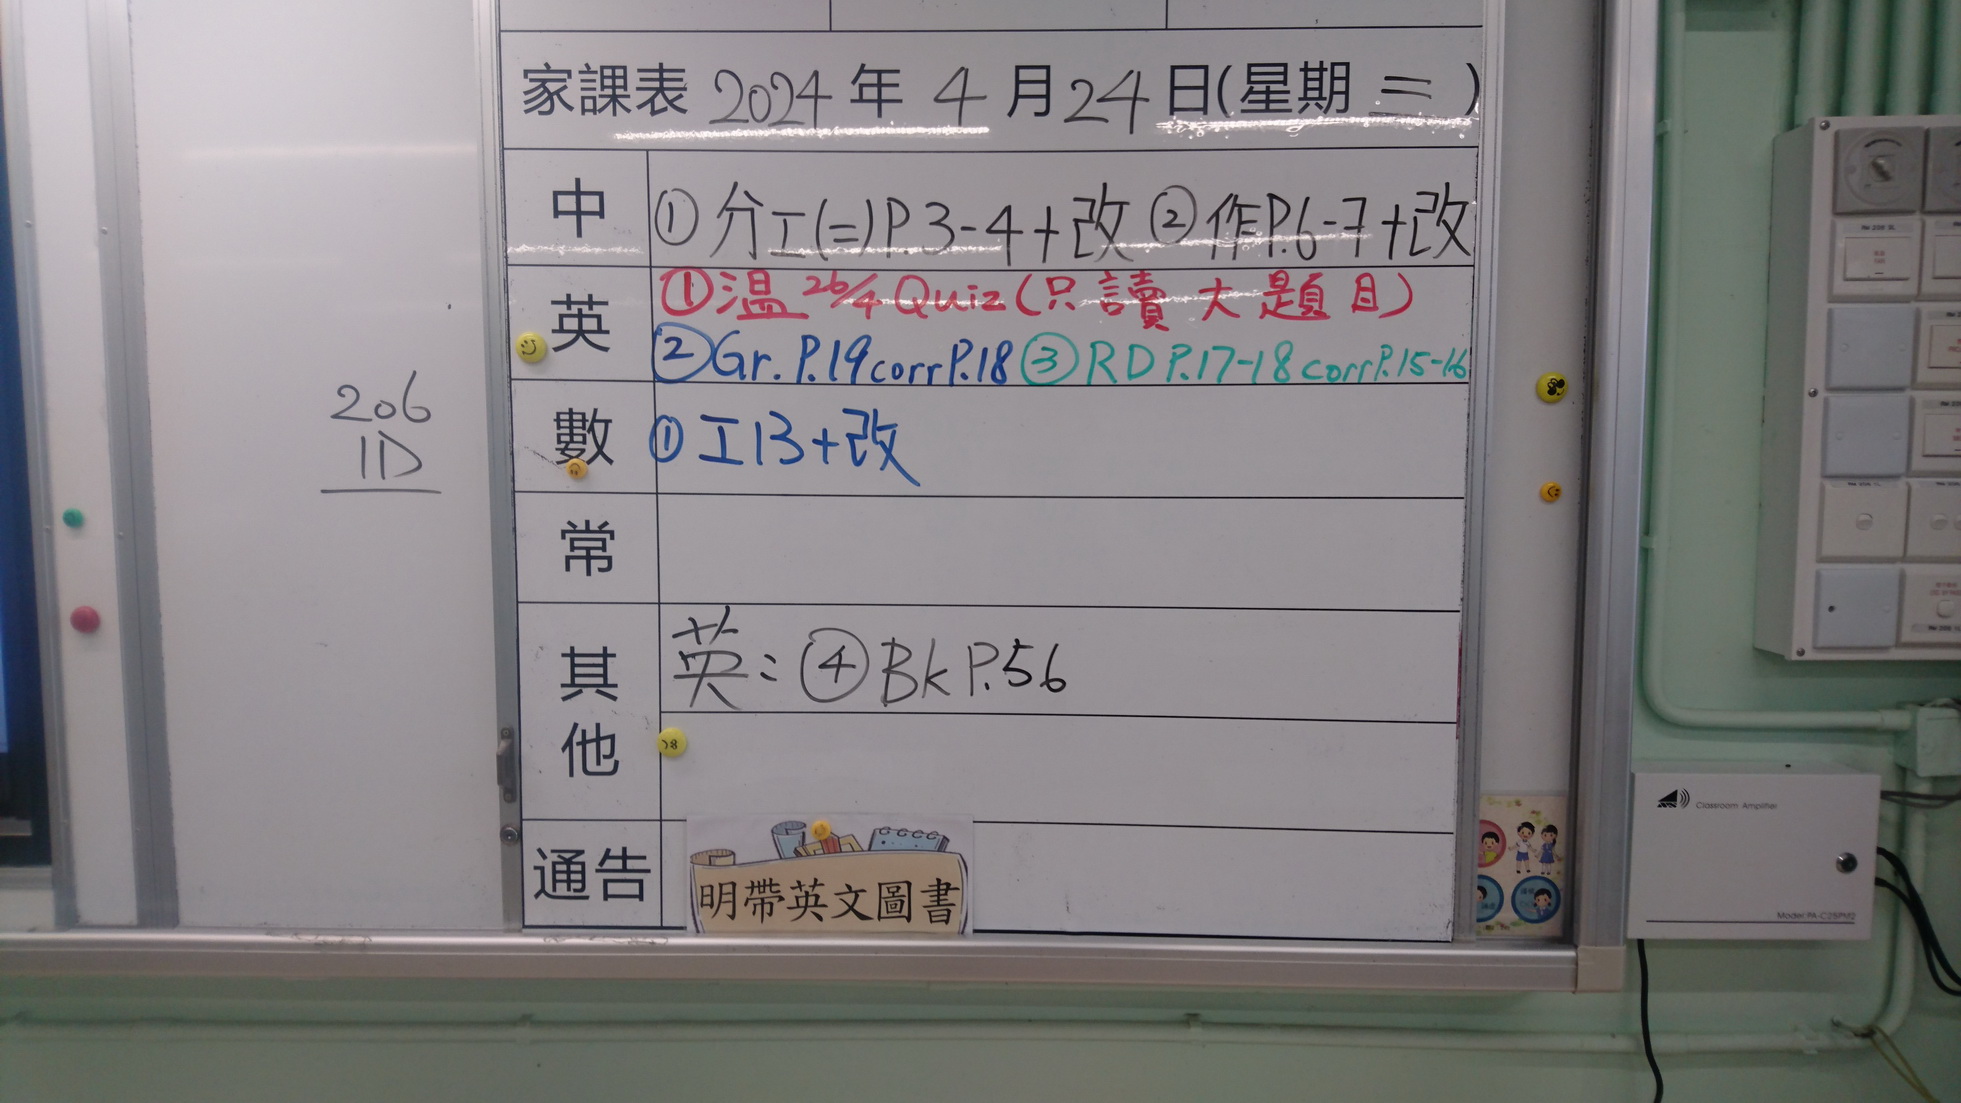 家課表 2024 年 4 月 24 日(星期 三 )
中 ① 分工(二)P.3-4+改 ② 作P.6-7+改
英 ①温 26/4 Quiz(只讀 大 題 目)
②Gr. P.19 corr P.18 ③ RD P.17-18 corr P.15-16
206
1D
數 ① 工13+改
常
其他 英: ④ Bk P.56
通告 明帶英文圖書
Classroom Amplifier
Model: PA-C25PM2